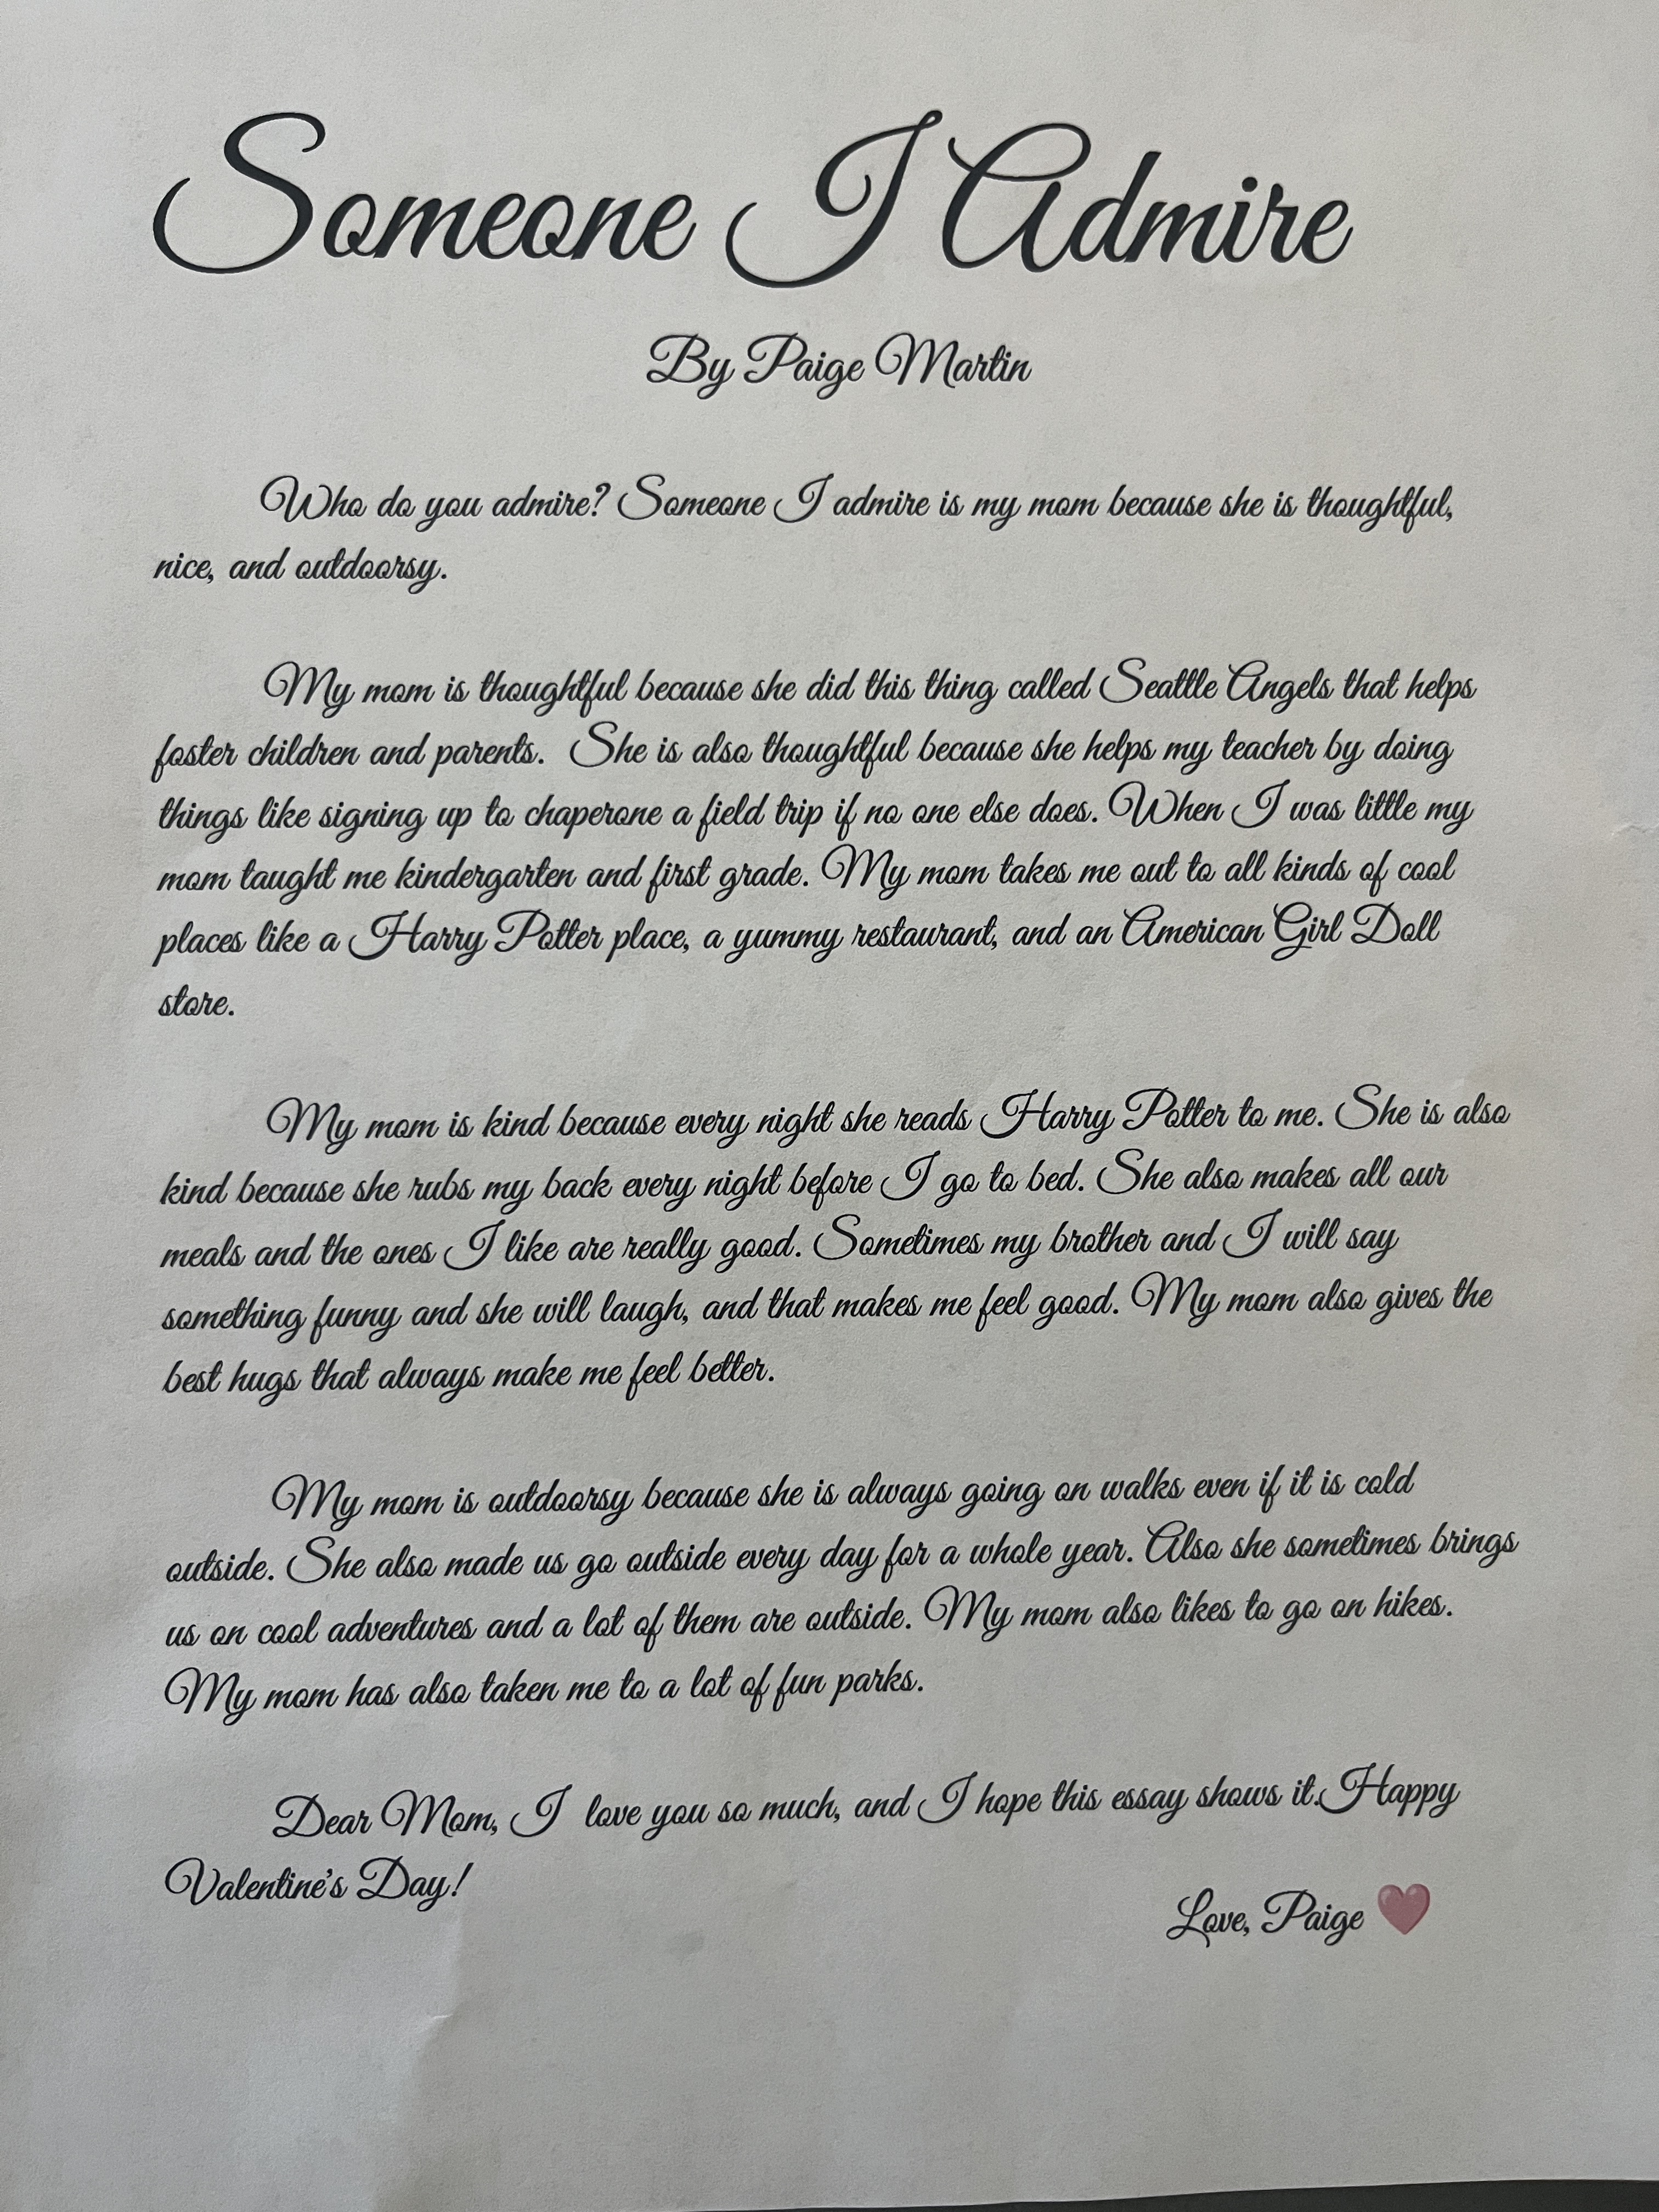 Someone I Admire
By Paige Martin
Who do you admire? Someone I admire is my mom because she is thoughtful,
nice, and outdoorsy.
My mom is thoughtful because she did this thing called Seattle Angels that helps
foster children and parents.  She is also thoughtful because she helps my teacher by doing
things like signing up to chaperone a field trip if no one else does. When I was little my
mom taught me kindergarten and first grade. My mom takes me out to all kinds of cool
places like a Harry Potter place, a yummy restaurant, and an American Girl Doll
store.
My mom is kind because every night she reads Harry Potter to me. She is also
kind because she rubs my back every night before I go to bed. She also makes all our
meals and the ones I like are really good. Sometimes my brother and I will say
something funny and she will laugh, and that makes me feel good. My mom also gives the
best hugs that always make me feel better.
My mom is outdoorsy because she is always going on walks even if it is cold
outside. She also made us go outside every day for a whole year. Also she sometimes brings
us on cool adventures and a lot of them are outside. My mom also likes to go on hikes.
My mom has also taken me to a lot of fun parks.
Dear Mom, I  love you so much, and I hope this essay shows it.Happy
Valentine's Day!
Love, Paige ❤️